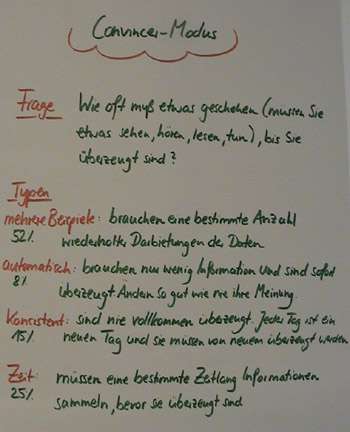 Convincer-Modus
Frage Wie oft muß etwas geschehen (müssen Sie
etwas sehen, hören, lesen, tun), bis Sie
überzeugt sind?
Typen
mehrere Beispiele: brauchen eine bestimmte Anzahl
52% wiederholter Darbietungen der Daten
automatisch: brauchen nur wenig Information und sind sofort
8% überzeugt. Ändern so gut wie nie ihre Meinung.
Konsistent: sind nie vollkommen überzeugt. Jeder Tag ist ein
15% neuen Tag und sie müssen von neuem überzeugt werden
Zeit: müssen eine bestimmte Zeitlang Informationen
25% sammeln, bevor sie überzeugt sind